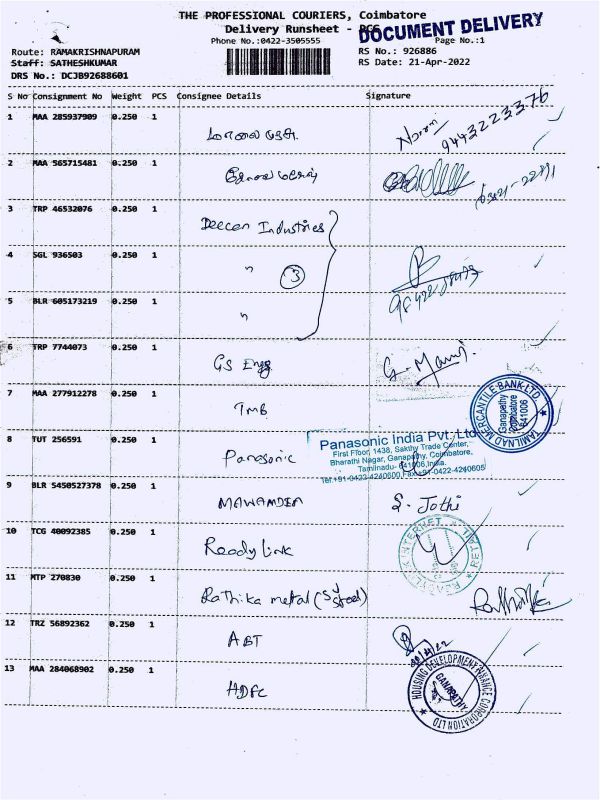 THE PROFESSIONAL COURIERS, Coimbatore
Delivery Runsheet -
DOCUMENT DELIVERY
Phone No.:0422-3505555
Page No.:1
Route: RAMAKRISHNAPURAM
RS No.: 926886
Staff: SATHESHKUMAR
RS Date: 21-Apr-2022
DRS No.: DCJB92688601
S No Consignment No Weight PCS Consignee Details Signature
1 MAA 285937909 0.250 1
9443223376
2 MAA 565715481 0.250 1
3 TRP 46532076 0.250 1 Deecan Industries
4 SGL 936503 0.250 1 " 3
5 BLR 605173219 0.250 1 "
6 TRP 7744073 0.250 1 GS Engg G. Mani.
7 MAA 277912278 0.250 1 TMB
TAMILNAD MERCANTILE BANK LTD.
Ganapathy
Coimbatore
641006
8 TUT 256591 0.250 1 Panasonic
Panasonic India Pvt. Ltd
First Floor, 1438, Sakthy Trade Center,
Bharathi Nagar, Ganapathy, Coimbatore,
Tamilnadu- 641006,India.
Tel:+91-0422-4240600,Fax:+91-0422-4240605
9 BLR 5450527378 0.250 1 MAWAMDEA S. Jothi
10 TCG 40092385 0.250 1 Ready link
11 MTP 270830 0.250 1 Rathika metal
12 TRZ 56892362 0.250 1 ABT
13 MAA 284068902 0.250 1 HDFC
HOUSING DEVELOPMENT FINANCE CORPORATION LTD
GANAPATHY